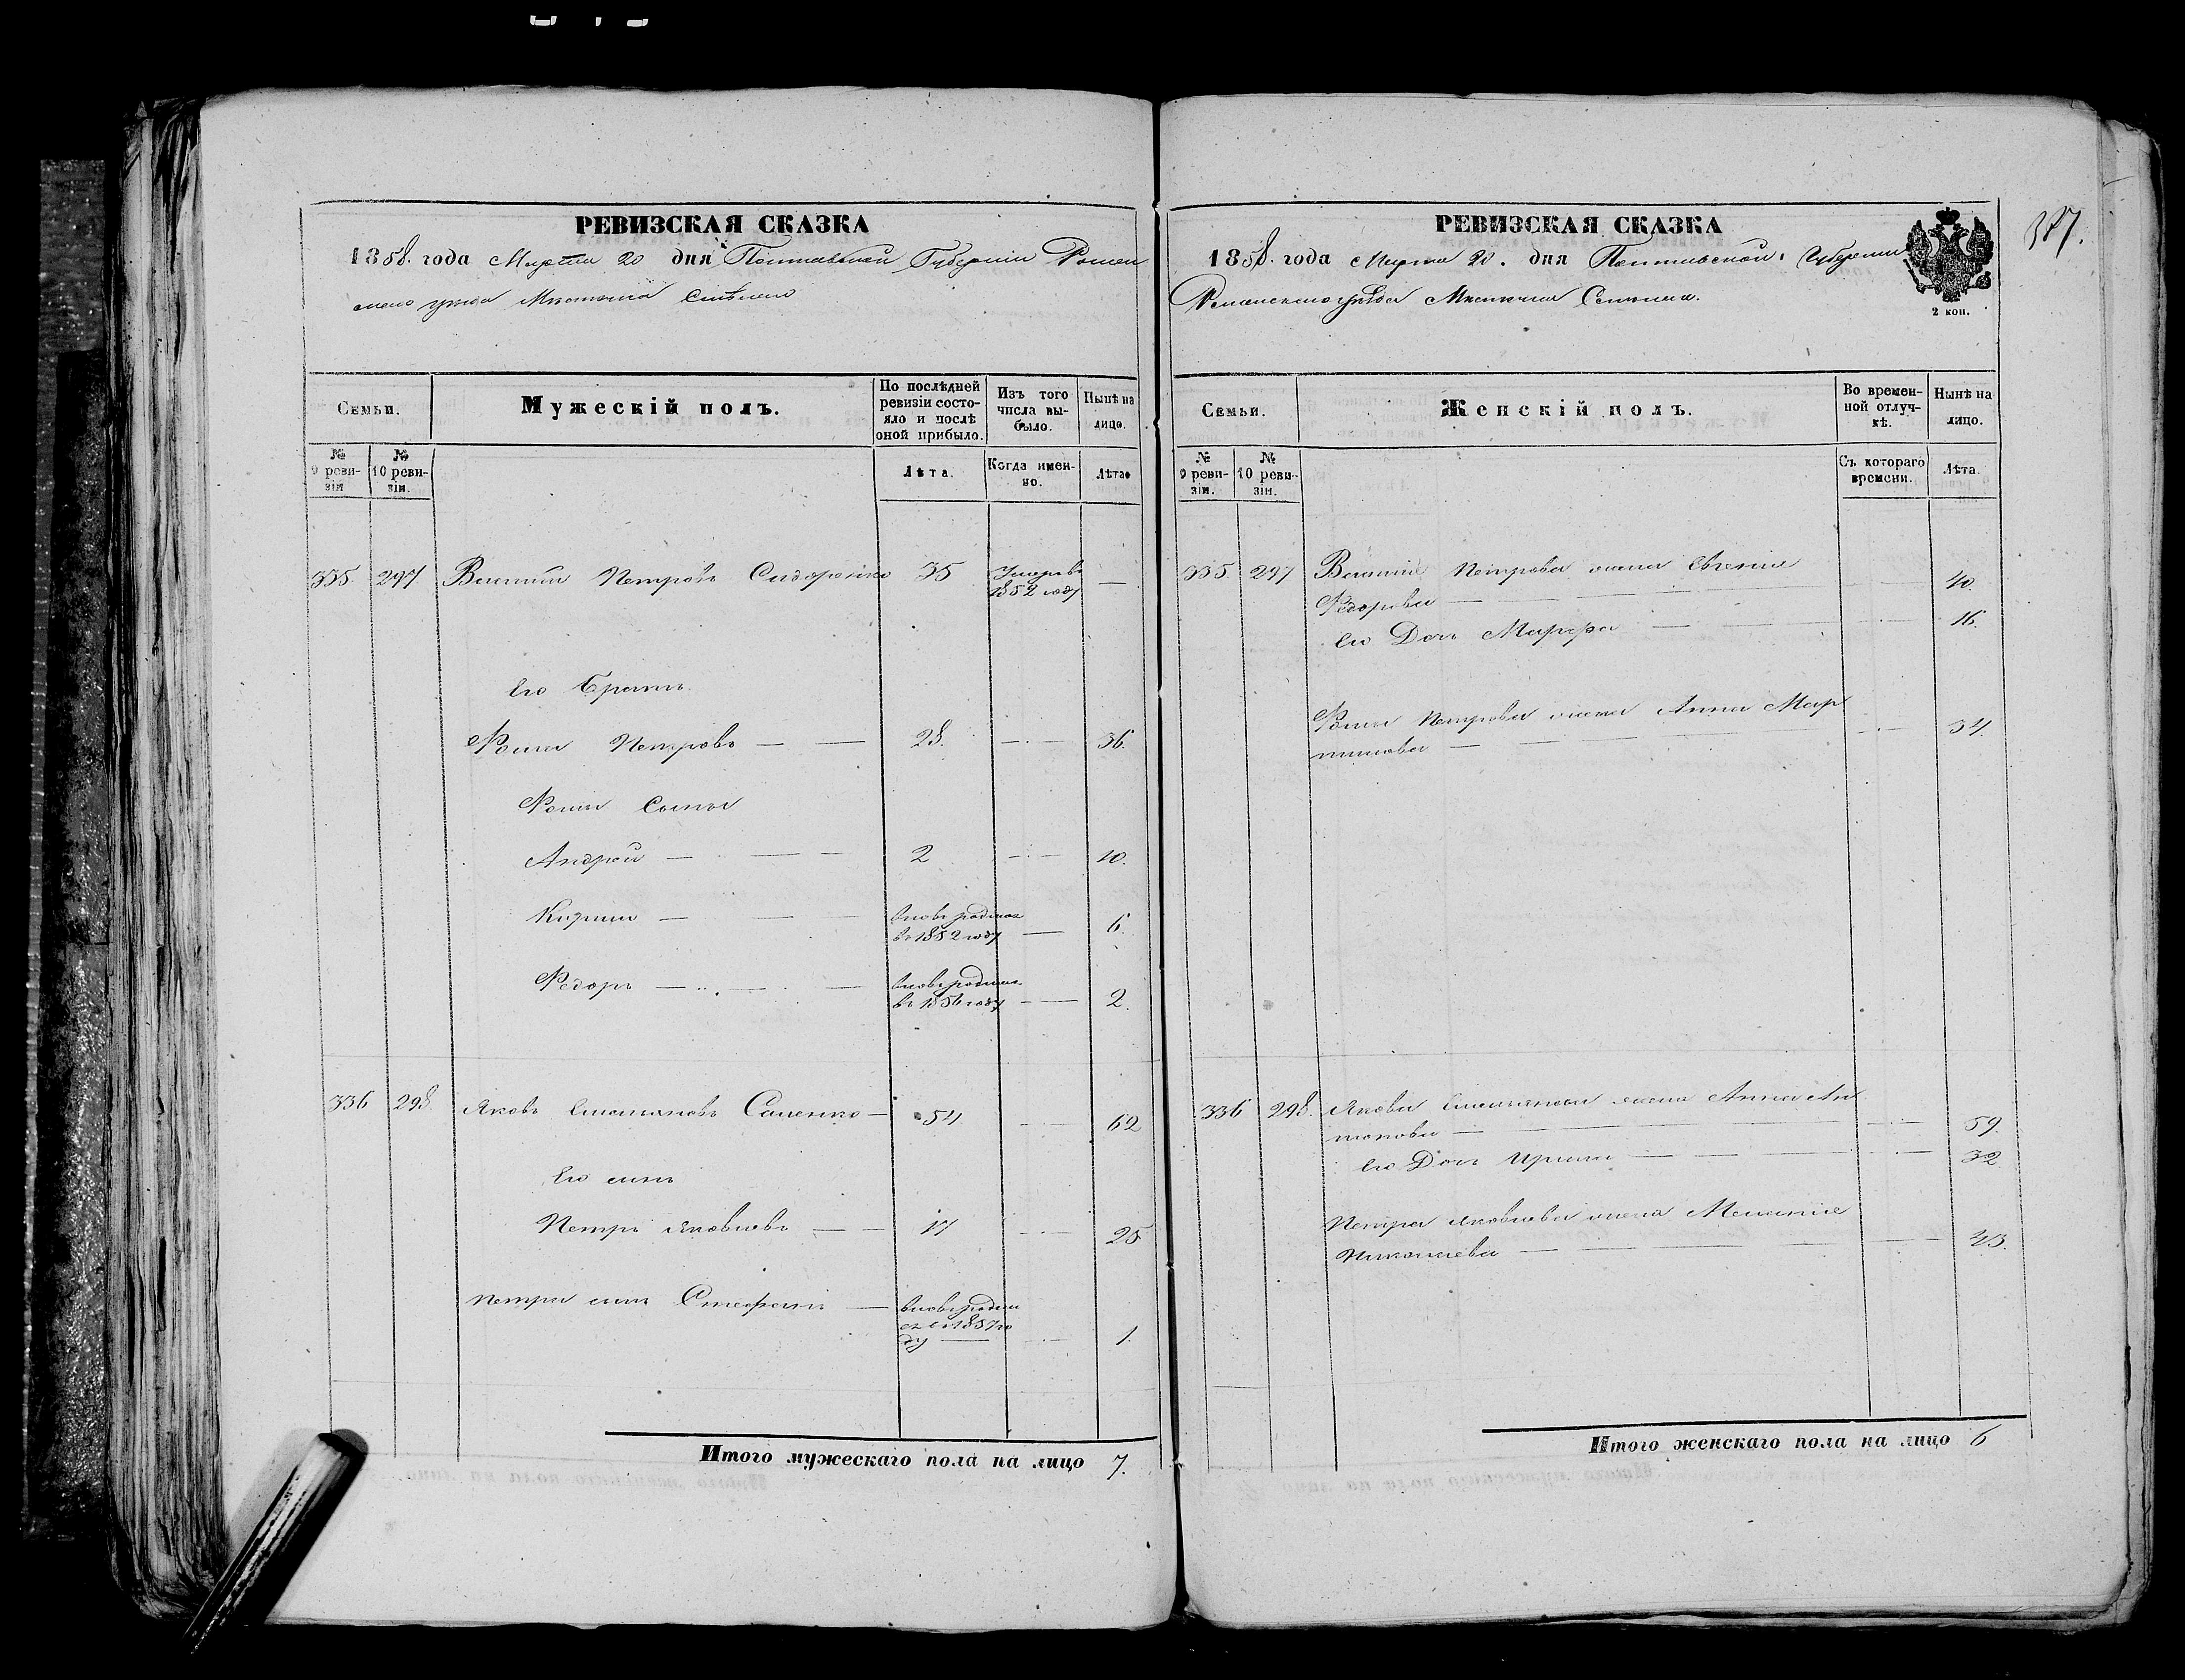 РЕВИЗСКАЯ СКАЗКА
1858. года Марта 20 дня Полтавской Губерніи Ромен
скаго уезда Местечка Смѣлаго
Семьи.
Мужескій полъ.
По послѣдней ревизіи состояло и послѣ оной прибыло.
Изъ того числа выбыло.
Нынѣ на лицо.
№ 9 ревизіи
№ 10 ревизіи.
Лѣта.
Когда именно.
Лѣта
335. 297 Василий Петровъ Сидоренко 35 Умеръ въ —
1852 году
Его Братъ
Фома Петровъ — — 28. — 36.
Фомы Сыны
Андрей — — — 2 — 10.
вновь родился
въ 1852 году — 6.
Федоръ — — — вновь родился
въ 1856 году — 2.
336 298. Яковъ Емельяновъ Саленко — 54 — 62
Его сынъ
Петръ Яковлевъ — 17 — 25
Петра сынъ Стефанъ — вновь родил
ся въ 1857 го
ду — — 1.
Итого мужескаго пола на лицо 7.
РЕВИЗСКАЯ СКАЗКА
1858. года Марта 20. дня Полтавской Губерніи
Роменскаго уѣзда Местечка Смелаго.
2 коп.
387.
Семьи.
Женскій полъ.
Во временной отлучкѣ.
Нынѣ на лицо.
№ 9 ревизіи.
№ 10 ревизіи.
Съ котораго времени.
Лѣта.
335. 297 Василия Петрова жена Евгения
Федорова — — 40.
Его Дочь Марфа — — 16.
Фомы Петрова жена Анна Мар
тинова — — 34.
336 298. Якова Емельянова жена Анна Ан
тонова — — 59.
Его Дочь Ирина — — 32
Петра Яковлева жена Мелания
Николаева — — 23.
Итого женскаго пола на лицо 6